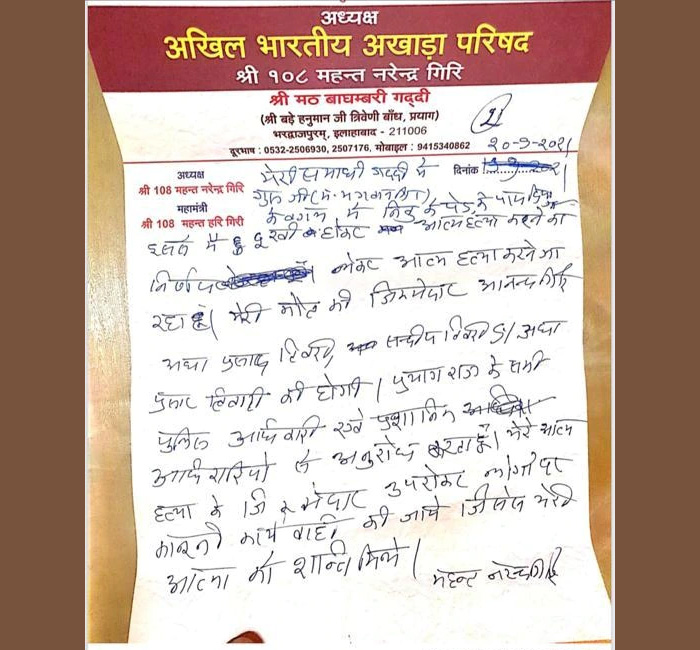 अध्यक्ष
अखिल भारतीय अखाड़ा परिषद
श्री १०८ महन्त नरेन्द्र गिरि
श्री मठ बाघम्बरी गद्दी
(श्री बड़े हनुमान जी त्रिवेणी बाँध, प्रयाग)
भरद्वाजपुरम्, इलाहाबाद - 211006
दूरभाष : 0532-2506930, 2507176, मोबाइल : 9415340862
21
२०-9-२०२१
दिनांक
अध्यक्ष
श्री 108 महन्त नरेन्द्र गिरि
महामंत्री
श्री 108 महन्त हरि गिरी
मेरी समाधी गद्दी में
गुरू जी
के बगल में के पेड़ के पास
मैं दुखी होकर आत्म हत्या करने का
निर्णय आत्म हत्या करने जा
रहा हूँ। मेरी मौत की जिम्मेदार आनन्द गिरि
अधा प्रसाद तिवारी, सन्दीप तिवारी S/ अधा
प्रसाद तिवारी की होगी। प्रयागराज के सभी
पुलिस एवं
से अनुरोध करता हूँ। मेरे आत्म
हत्या के जिम्मेदार उपरोक्त लोगों पर
कानूनी कार्यवाही की जाये जिससे मेरी
आत्मा को शान्ति मिले।
महन्त नरेन्द्र गिरि